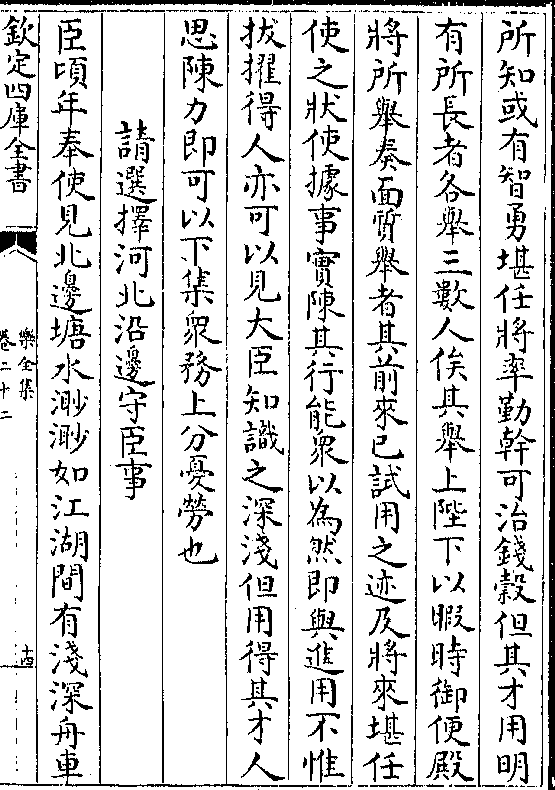 所知或有智勇堪任將率勤幹可治錢穀但其才用明
有所長者各舉三數人俟其舉上陛下以暇時御便殿
將所舉奏面質舉者其前來已試用之迹及將來堪任
使之狀使據事實陳其行能衆以為然即與進用不惟
拔擢得人亦可以見大臣知識之深淺但用得其才人
思陳力即可以下集衆務上分憂勞也
請選擇河北沿邊守臣事
臣頃年奉使見北邊塘水渺渺如江湖間有淺深舟車
欽定四庫全書
樂全集
卷二十二
十四